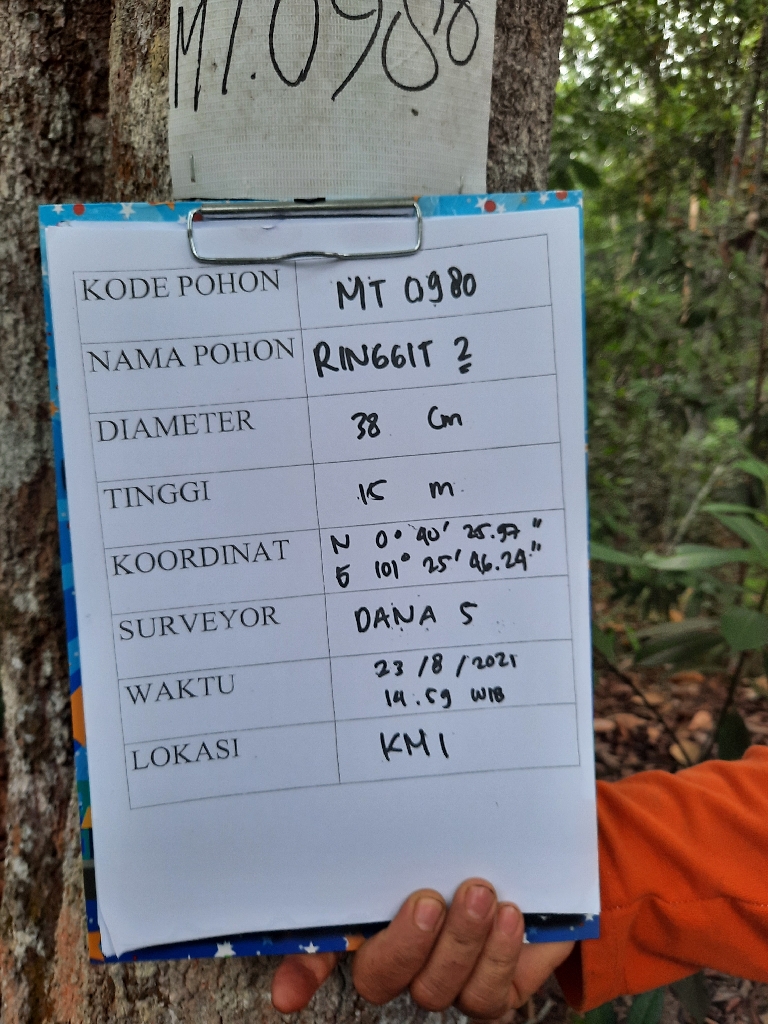 MT.0980
KODE POHON MT 0980
NAMA POHON RINGGIT 2
DIAMETER 38 Cm
TINGGI 15 m
KOORDINAT N 0° 40' 25.97"
E 101° 25' 46.24"
SURVEYOR DANA S
WAKTU 23/8/2021
14.59 WIB
LOKASI KM 1